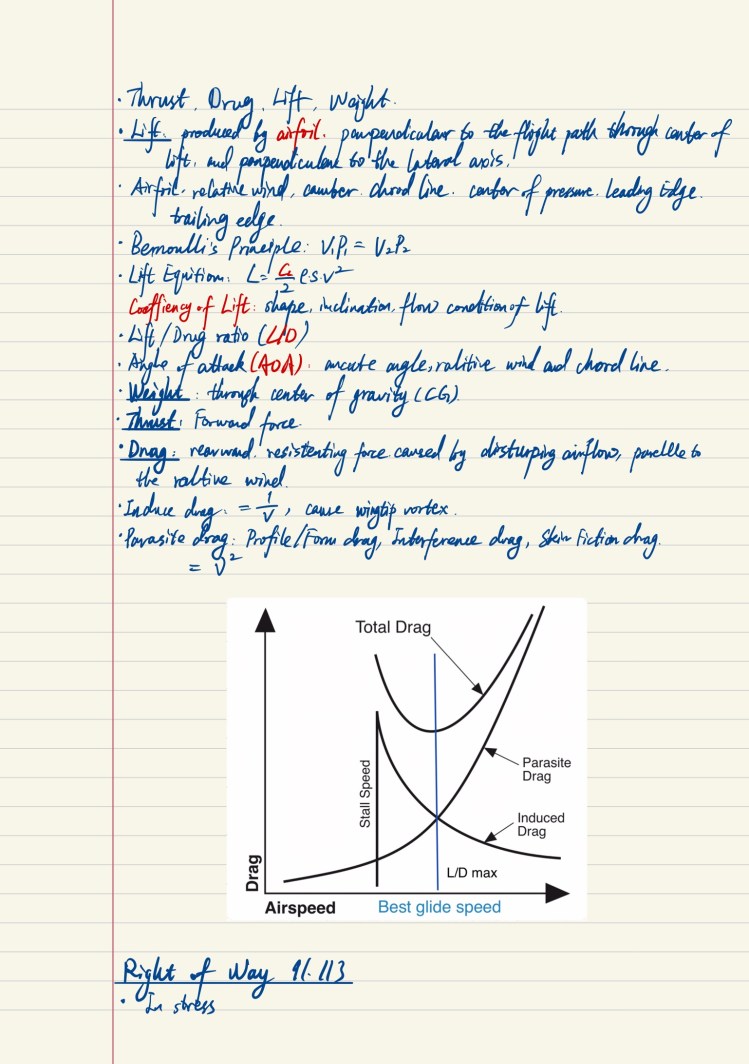 · Thrust, Drug, Lift, Weight.
· Lift: produced by airfoil. perpendicular to the flight path through center of
lift. and perpendicular to the lateral axis.
· Airfoil. relative wind, camber. chord line. center of pressure. leading Edge.
trailing edge.
· Bernoulli's Principle: V₁P₁ = V₂P₂
· Lift Equition: L = CL/2 ρ.s.v²
Coeffiency of Lift: shape, inclination, flow condition of lift.
· Lift / Drug ratio (L/D)
· Angle of attack (AOA): ancute angle, ralitive wind and chord line.
· Weight: through center of gravity (CG)
· Thrust: Forward force.
· Drag: rearward. resistenting force caused by disturping airflow, parelle to
the raltive wind.
· Induce drag: = 1/V, cause wingtip vortex.
· Parasite drag: Profile/Form drag, Interference drag, Skin Fiction drag.
= V²
Total Drag
Stall Speed
Parasite
Drag
Induced
Drag
Drag
L/D max
Airspeed
Best glide speed
Right of Way 91.113
· In stress